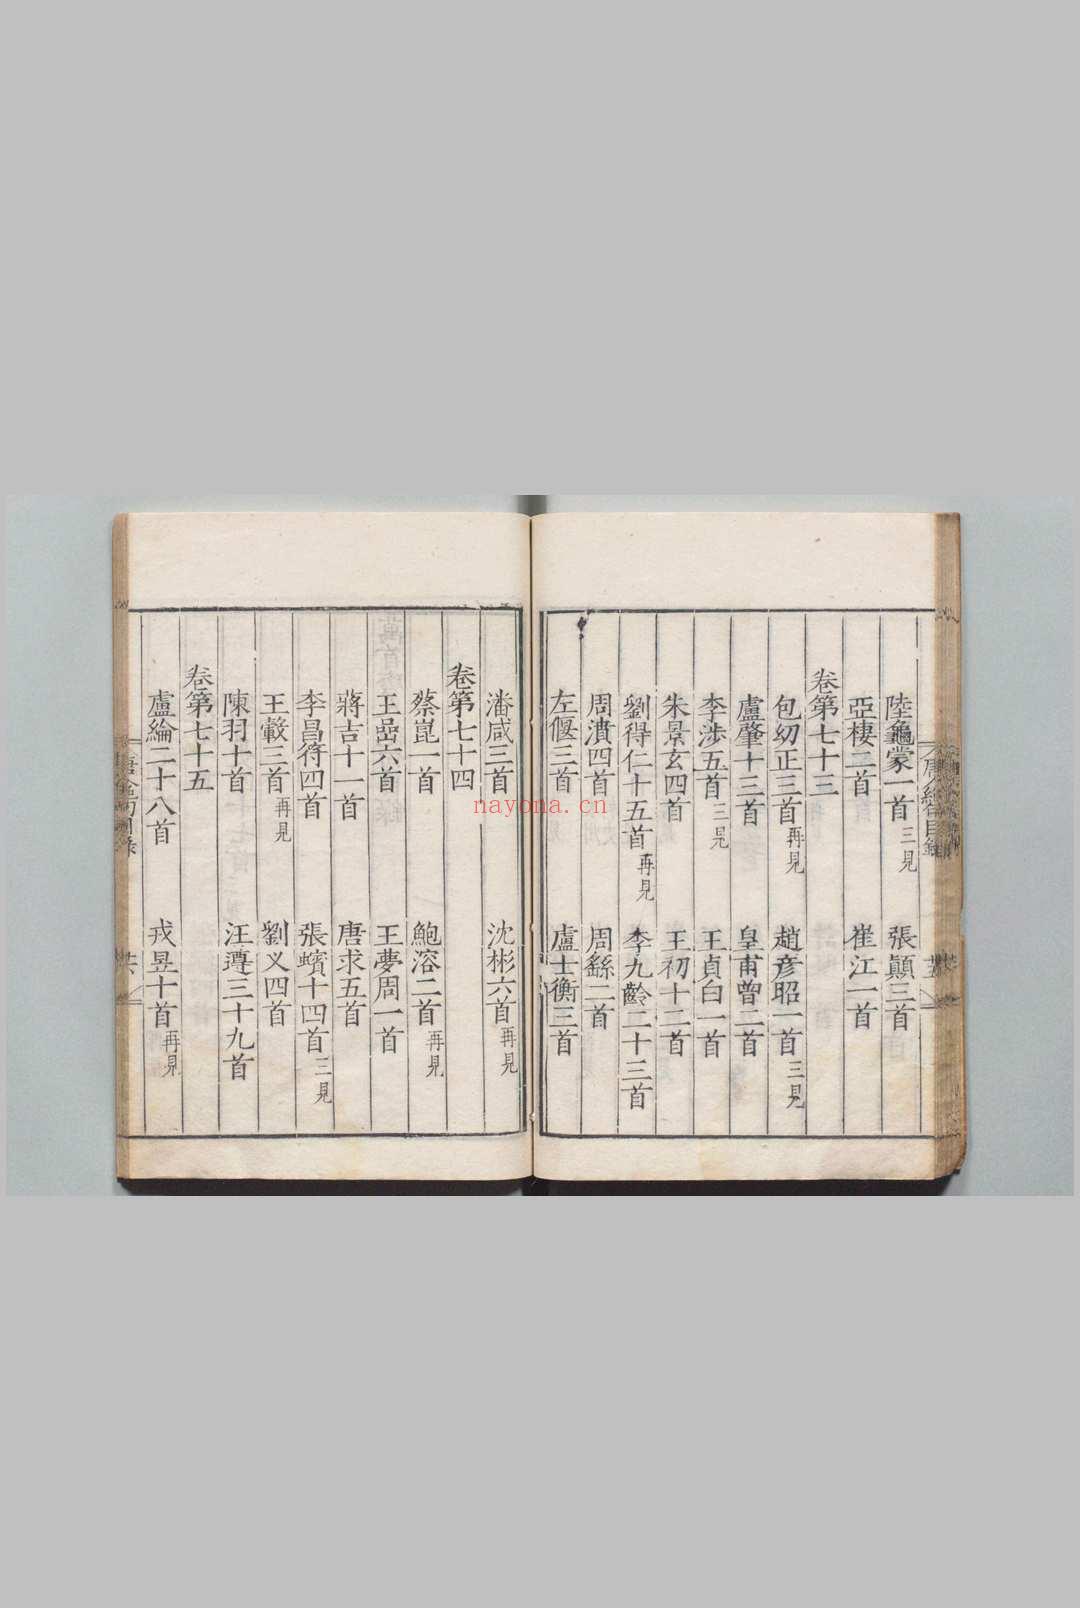 陸龜蒙一首三見 張顛三首
亞棲二首 崔江一首
卷第七十三
包幼正三首再見 趙彥昭一首三見
盧肇十三首 皇甫曾二首
李涉五首三見 王貞白一首
朱景玄四首 王初十二首
劉得仁十五首再見 李九齡二十三首
周濆四首 周繇二首
左偃三首 盧士衡三首
潘咸三首 沈彬六首再見
卷第七十四
蔡崑一首 鮑溶二首再見
王喦六首 王夢周一首
蔣吉十一首 唐求五首
李昌符四首 張蠙十四首三見
王轂三首再見 劉义四首
陳羽十首 汪遵三十九首
卷第七十五
盧綸二十八首 戎昱十首再見
nayona.cn